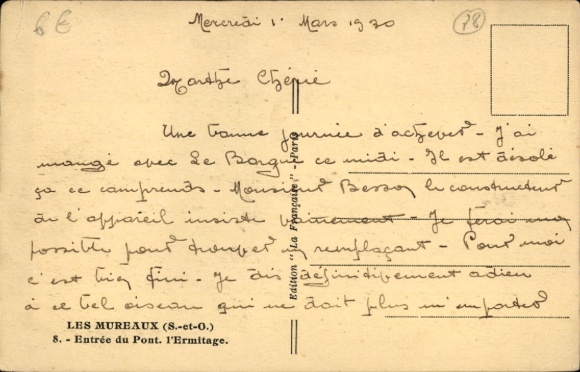 6 €
Mercredi 1er Mars 1930
78
Marthe Chérie
Une bonne journée d'achever - J'ai
mangé avec Le Borgne ce midi - Il est désolé
ça ce comprends - Monsieur Besson le constructeur
de l'appareil insiste vainement - Je ferai mon
possible pour trouver un remplaçant - Pour moi
c'est bien fini - Je dis définitivement adieu
à ce bel oiseau qui ne doit plus m'emporter
LES MUREAUX (S.-et-O.)
8. - Entrée du Pont. l'Ermitage.
Edition "La Française" - Paris